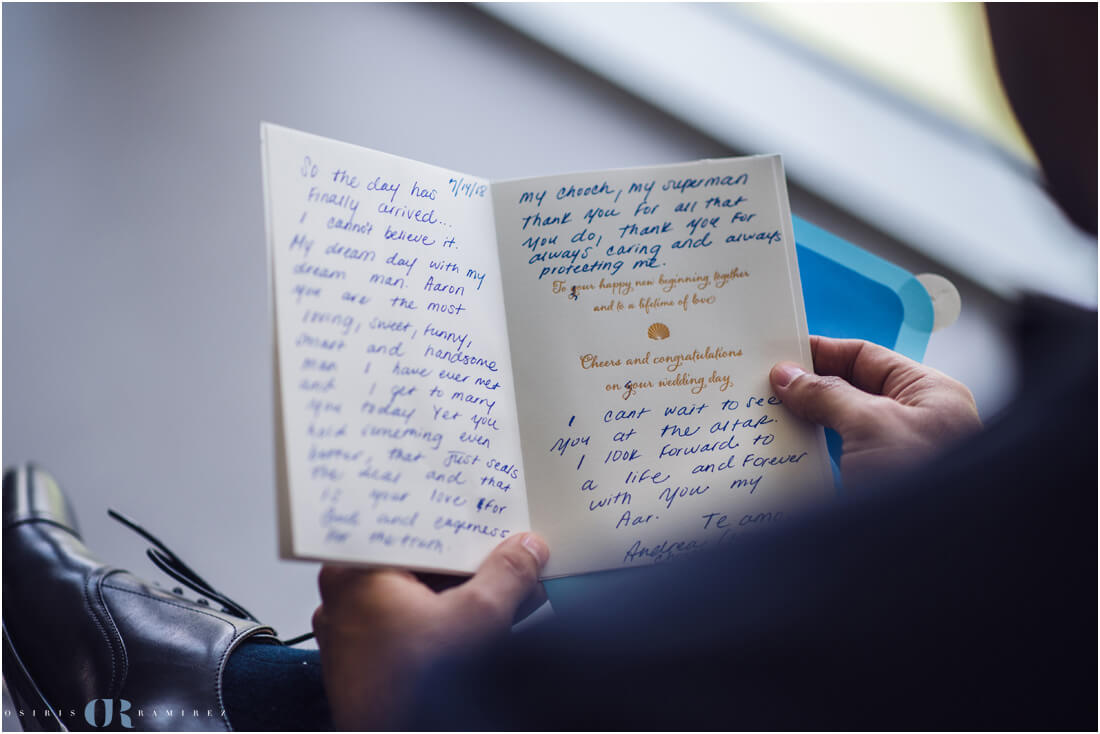 So the day has 7/14/18
Finally arrived...
I cannot believe it.
My dream day with my
dream man. Aaron
you are the most
loving, sweet, funny,
smart and handsome
man I have ever met
and I get to marry
you today. Yet you
hold something even
better, that just seals
the deal and that
is your love for
God and eagerness
for the truth.
my chooch, my superman
thank you for all that
you do, thank you for
always caring and always
protecting me.
To your happy new beginning together
and to a lifetime of love
Cheers and congratulations
on your wedding day
I cant wait to see
you at the altar.
I look forward to
a life and forever
with you my
Aar.
Te amo
Andrea
OSIRIS OR RAMIREZ